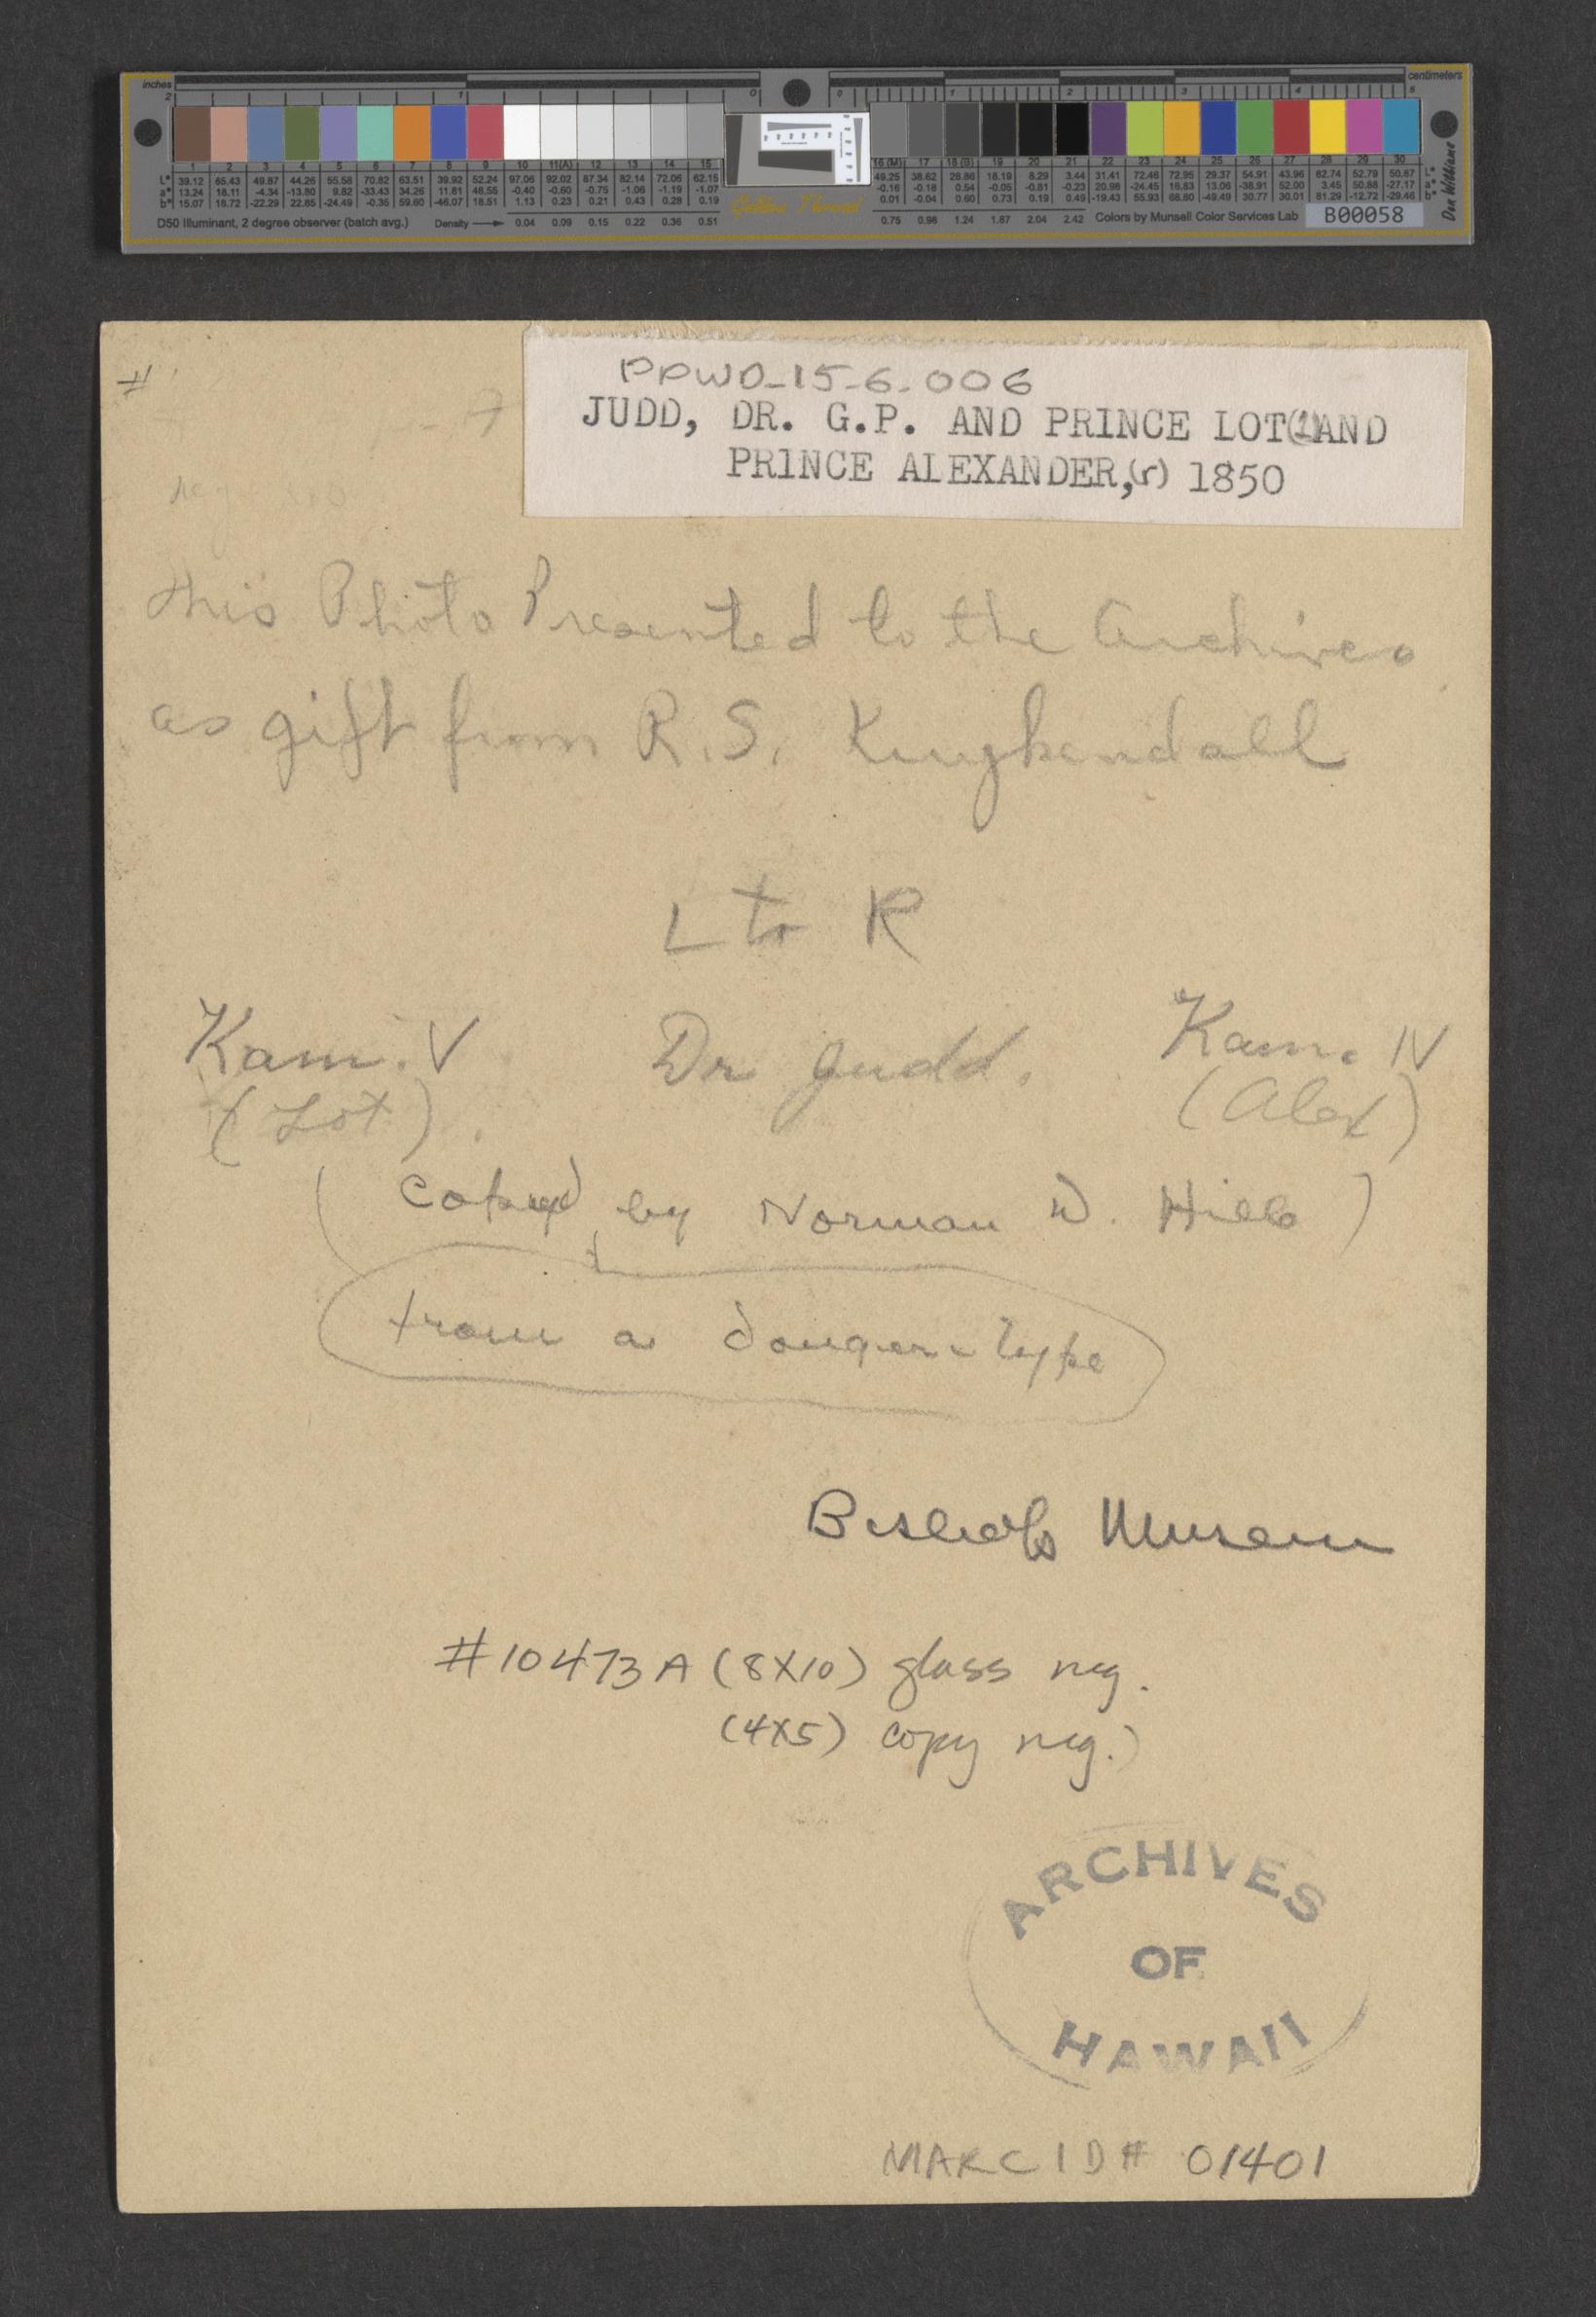 inches
centimeters
2 1 0 0 1 2 3 4 5
1 2 3 4 5 6 7 8 9 10 11(A) 12 13 14 15 16 (M) 17 18 (B) 19 20 21 22 23 24 25 26 27 28 29 30
L* 39.12 65.43 49.87 44.26 55.56 70.82 63.51 39.92 52.24 97.06 92.02 87.34 82.14 72.06 62.15 49.25 38.62 28.86 18.19 8.29 3.44 31.41 72.46 72.95 29.37 54.91 43.96 82.74 52.79 50.87 L*
a* 13.24 18.11 -4.34 -13.80 9.82 -33.43 34.26 11.81 48.55 -0.40 -0.60 -0.75 -1.06 -1.19 -1.07 -0.16 -0.18 0.54 -0.05 -0.81 -0.23 20.98 -24.45 16.83 13.06 -38.91 52.00 3.45 50.88 -27.17 a*
b* 15.07 18.72 -22.29 22.85 -24.49 -0.35 59.60 -46.07 18.51 1.13 0.23 0.21 0.43 0.28 0.19 0.01 -0.04 0.60 0.73 0.19 0.49 -19.43 55.93 68.80 -49.49 30.77 30.01 81.29 -12.72 -29.46 b*
D50 Illuminant, 2 degree observer (batch avg.) Density 0.04 0.09 0.15 0.22 0.36 0.51 Golden Thread 0.75 0.98 1.24 1.67 2.04 2.42 Colors by Munsell Color Services Lab B00058
Don Williams
#
PPWD-15-6.006
JUDD, DR. G.P. AND PRINCE LOT(l)AND
PRINCE ALEXANDER,(r) 1850
This Photo Presented to the Archives
as gift from R.S. Kuykendall
L to R
Kam. V Dr Judd. Kam. IV
(Lot). (Alex)
(Copied by Norman D. Hill)
from a
Bishop Museum
#10473A (8X10) glass neg.
(4X5) copy neg.)
ARCHIVES
OF
HAWAII
MARC ID# 01401